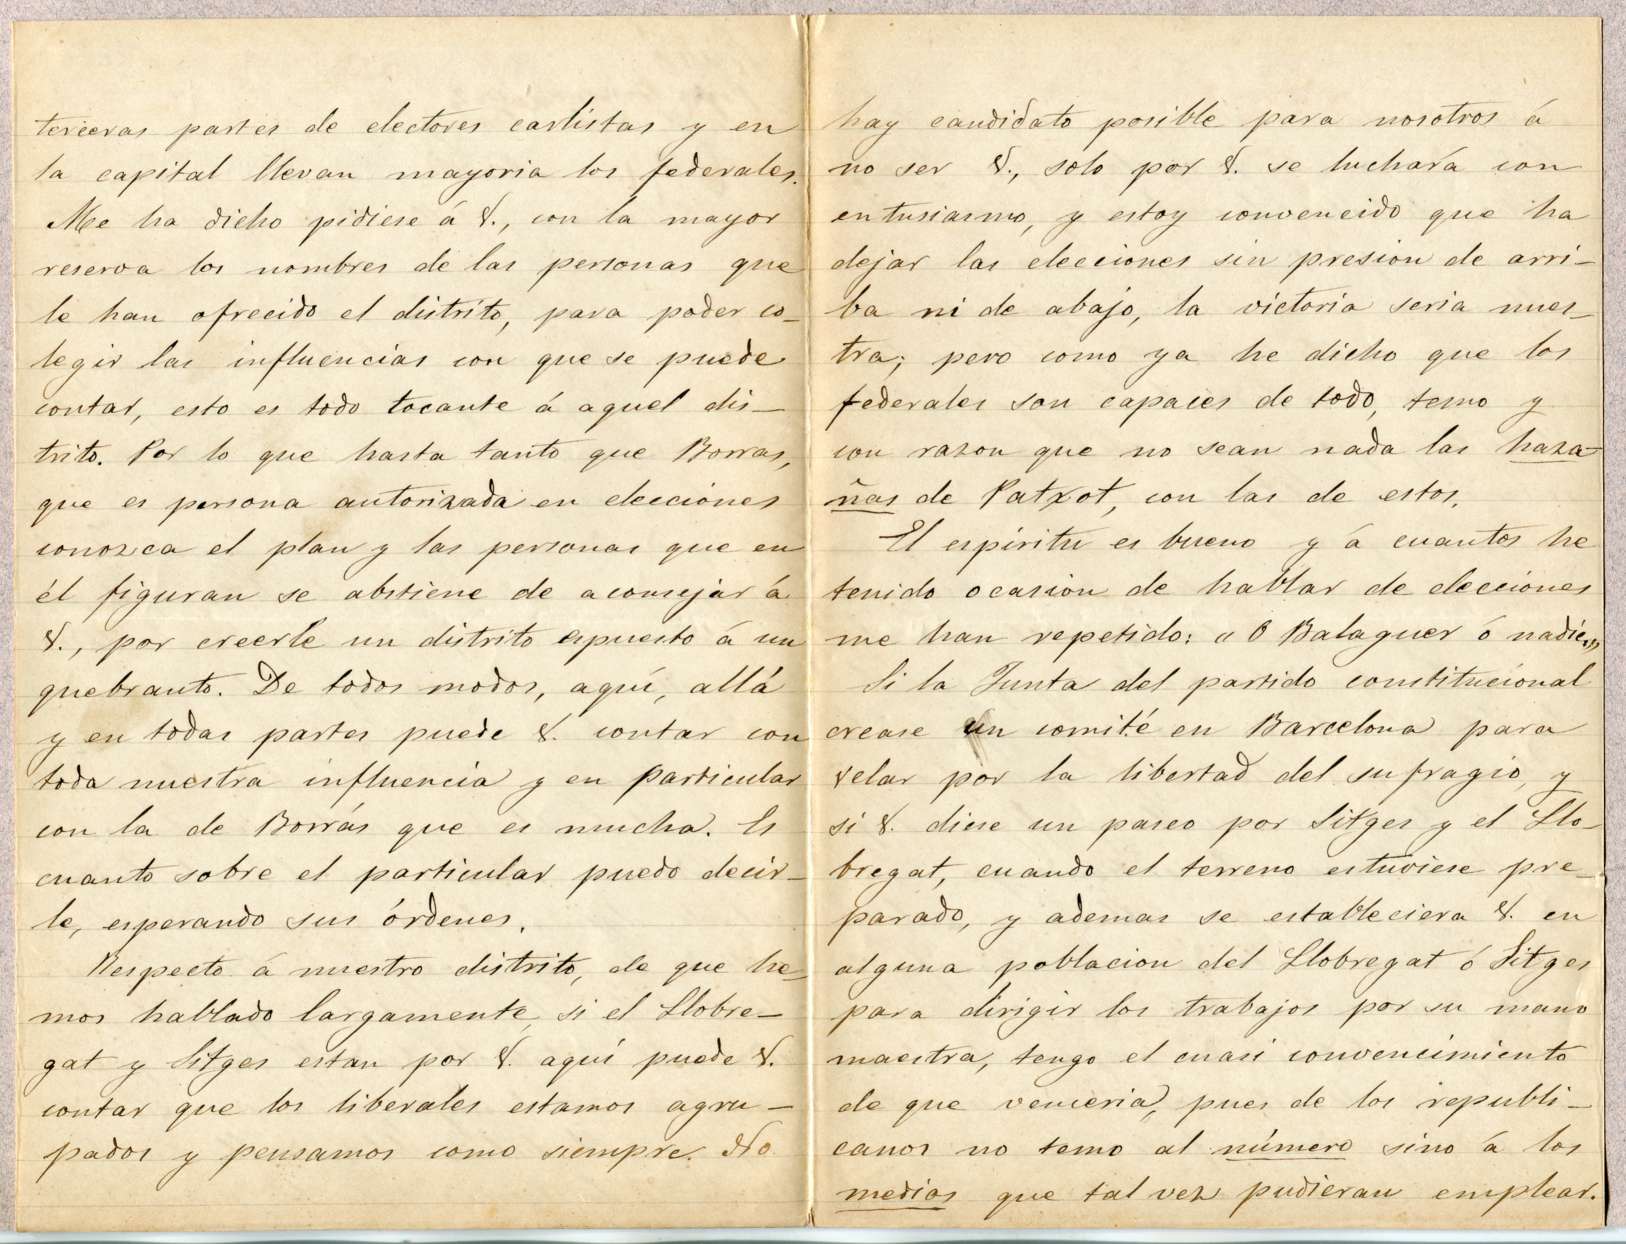 terceras partes de electores carlistas y en
la capital llevan mayoria los federales.
Me ha dicho pidiese á V., con la mayor
reserva los nombres de las personas que
le han ofrecido el distrito, para poder co-
legir las influencias con que se puede
contar, esto es todo tocante á aquel dis-
trito. Por lo que hasta tanto que Borras,
que es persona autorizada en elecciones
conozca el plan y las personas que en
él figuran se abstiene de aconsejar á
V., por creerle un distrito espuesto á un
quebranto. De todos modos, aquí, allá
y en todas partes puede V. contar con
toda nuestra influencia y en particular
con la de Borrás que es mucha. Es
cuanto sobre el particular puedo decir-
le, esperando sus órdenes.
Respecto á nuestro distrito, de que he-
mos hablado largamente, si el Llobre-
gat y Sitges estan por V. aquí puede V.
contar que los liberales estamos agru-
pados y pensamos como siempre. No
hay candidato posible para nosotros á
no ser V., solo por V. se luchará con
entusiasmo, y estoy convencido que ha
dejar las elecciones sin presion de arri-
ba ni de abajo, la victoria seria nues-
tra; pero como ya he dicho que los
federales son capaces de todo, temo y
con razon que no sean nada las haza-
ñas de Patxot, con las de estos.
El espiritu es bueno y á cuantos he
tenido ocasion de hablar de elecciones
me han repetido: "O Balaguer ó nadie."
Si la Junta del partido constitucional
crease un comité en Barcelona para
velar por la libertad del sufragio, y
si V. diese un paseo por Sitges y el Llo-
bregat, cuando el terreno estuviese pre-
parado, y ademas se estableciera V. en
alguna poblacion del Llobregat ó Sitges
para dirigir los trabajos por su mano
maestra, tengo el cuasi convencimiento
de que venceria, pues de los republi-
canos no temo al número sino á los
medios que tal vez pudieran emplear.